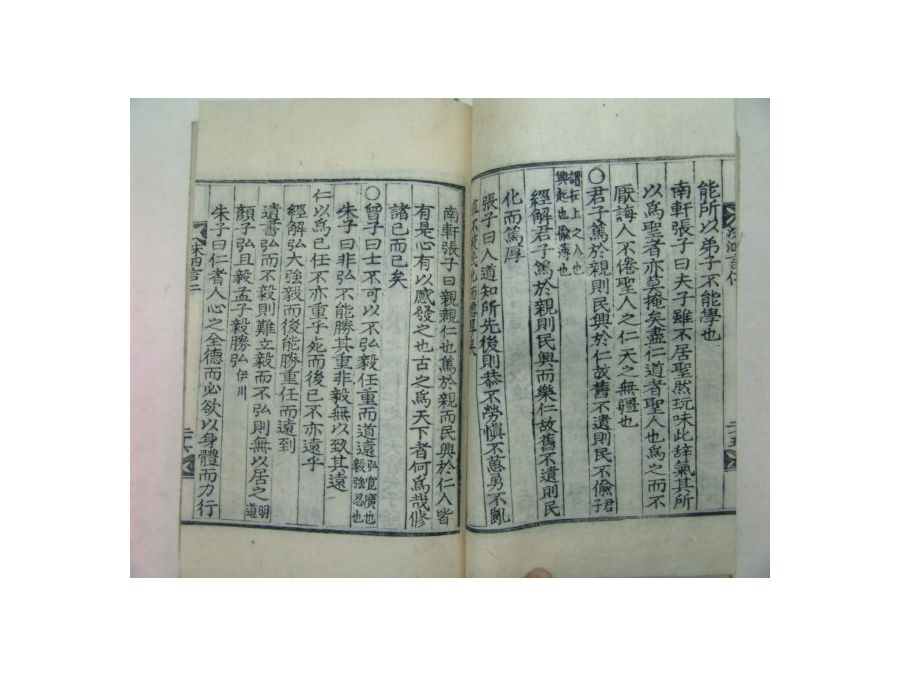 能所以弟子不能學也
南軒張子曰夫子雖不居聖然玩味此辞氣其所
以爲聖者亦莫掩矣盡仁道者聖人也爲之而不
厭誨人不倦聖人之仁天之無疆也
○君子篤於親則民興於仁故舊不遺則民不偷君子
謂在上之人也
興起也偷薄也
經解君子篤於親則民興而樂仁故舊不遺則民
化而篤厚
張子曰人道知所先後則恭不勞愼不葸勇不亂
直不絞民化而德厚矣
南軒張子曰親親仁也篤於親而民興於仁人皆
有是心有以感發之也古之爲天下者何爲哉修
諸己而已矣
○曾子曰士不可以不弘毅任重而道遠弘寬廣也毅強忍也
朱子曰非弘不能勝其重非毅無以致其遠
仁以爲己任不亦重乎死而後已不亦遠乎
經解弘大強毅而後能勝重任而遠到
遺書弘而不毅則難立毅而不弘則無以居之明道
顏子弘且毅孟子毅勝弘伊川
朱子曰仁者人心之全德而必欲以身體而力行